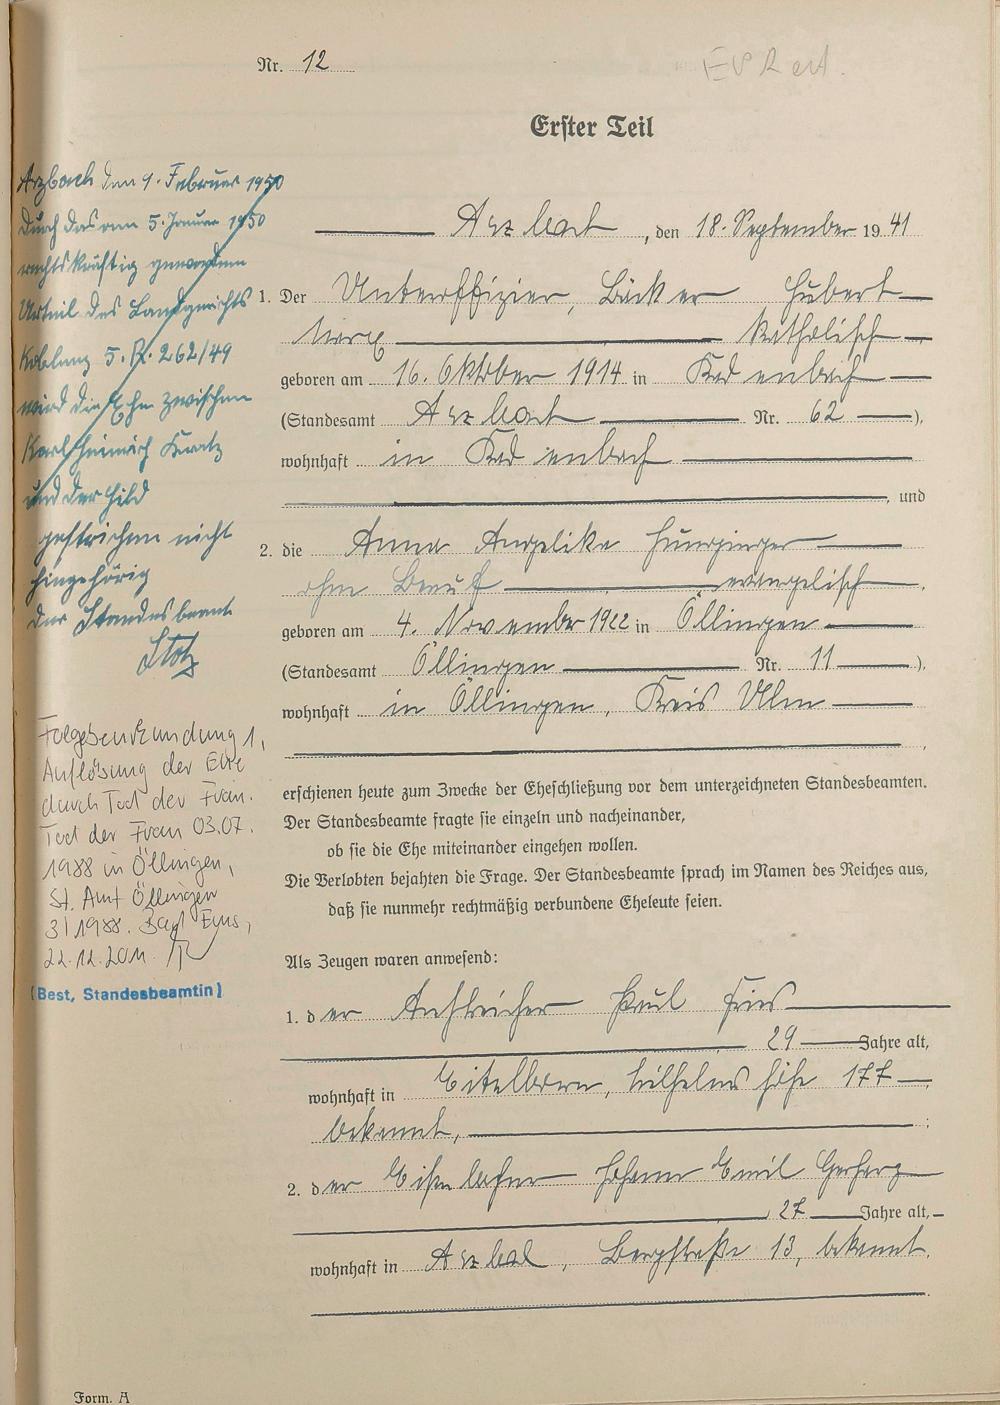 Nr. 12
Erster Teil
Arzbach, den 18. September 1941
1. Der Unteroffizier, Bäcker Hubert
katholisch
geboren am 16. Oktober 1914 in Kadenbach
(Standesamt Arzbach Nr. 62),
wohnhaft in Kadenbach
, und
2. die Anna Angelika
ohne Beruf evangelisch,
geboren am 4. November 1922 in Öllingen
(Standesamt Öllingen Nr. 11),
wohnhaft in Öllingen, Kreis Ulm
,
erschienen heute zum Zwecke der Eheschließung vor dem unterzeichneten Standesbeamten.
Der Standesbeamte fragte sie einzeln und nacheinander,
ob sie die Ehe miteinander eingehen wollen.
Die Verlobten bejahten die Frage. Der Standesbeamte sprach im Namen des Reiches aus,
daß sie nunmehr rechtmäßig verbundene Eheleute seien.
Als Zeugen waren anwesend:
1. der Anstreicher Paul Fries
29 Jahre alt,
wohnhaft in Eitelborn, Wilhelms höhe 177,
bekannt, ;
2. der Johann Emil Gerharz
, 27 Jahre alt,
wohnhaft in Arzbach, Bergstraße 13, bekannt.
Form. A
Arzbach den 9. Februar 1950
Durch das am 5. Januar 1950
rechtskräftig gewordene
Urteil des Landgerichts
Koblenz 5. R. 262/49
wird die Ehe zwischen
Karl Heinrich Kratz
und der Hild
gestrichen nicht
hingehörig
Der Standesbeamte
Folgebeurkundung 1,
Auflösung der Ehe
durch Tod der Frau.
Tod der Frau 03.07.
1988 in Öllingen,
St. Amt Öllingen
3/1988. Bad Ems,
22.12.2011.
(Best, Standesbeamtin)